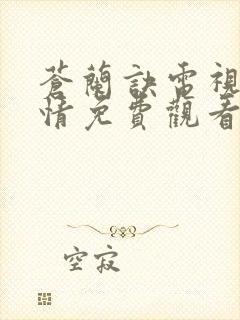 蒼蘭訣電視
情免費觀看
空寂